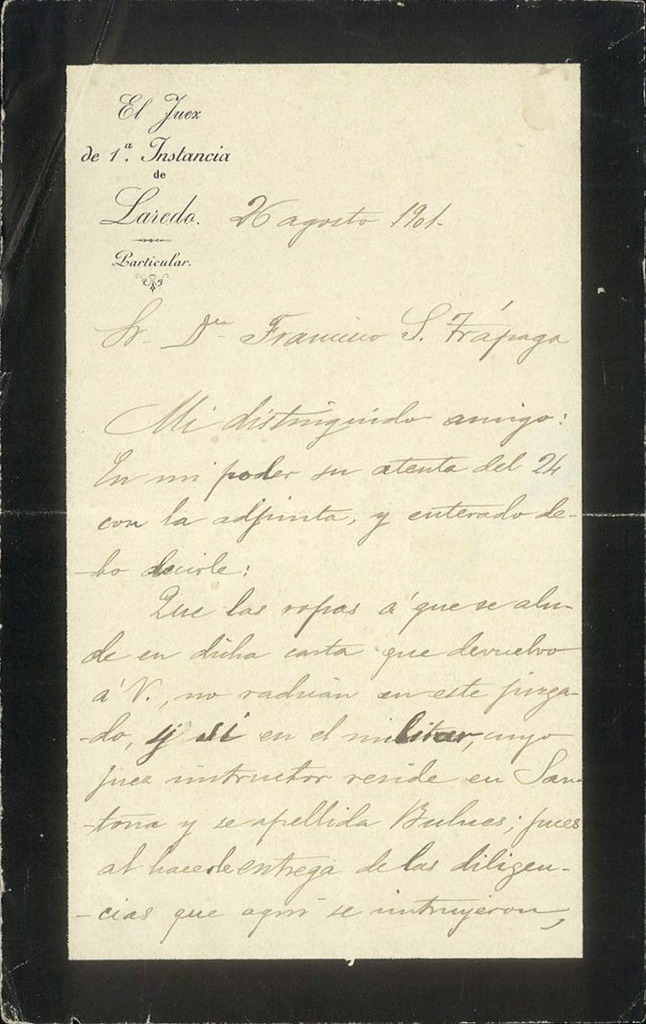 El Juez
de 1ª. Instancia
de
Laredo.
Particular.
26 agosto 1901.
Sr. Dn. Francisco S. Trápaga
Mi distinguido amigo:
En mi poder su atenta del 24
con la adjunta, y enterado de-
-bo decirle:
Que las ropas á que se alu-
de en dicha carta que devuelvo
á V., no radican en este juzga-
-do, y si en el militar, cuyo
juez instructor reside en San-
-toña y se apellida Bulnes; pues
al hacerle entrega de las diligen-
-cias que aquí se instruyeron,